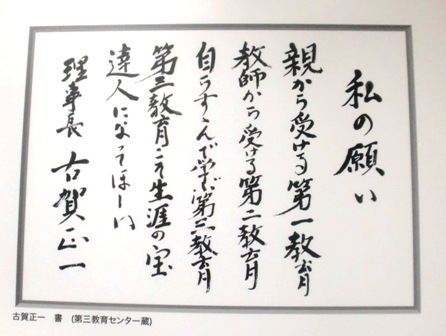 私の願い
親から受ける第一教育
教師から受ける第二教育
自らすすんで学ぶ第三教育
第三教育こそ生涯の宝
達人になってほしい
理事長 古賀正一
古賀正一 書 (第三教育センター蔵)